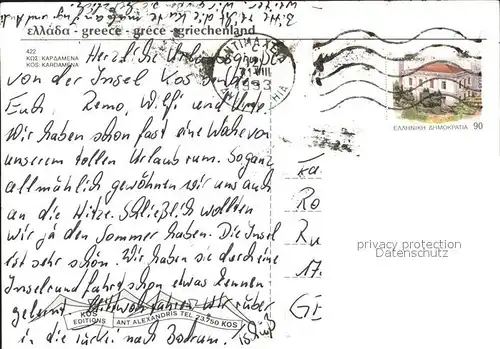 ελλάδα - greece - grèce - griechenland
422
ΚΩΣ. ΚΑΡΔΑΜΕΝΑ
KOS. KARDAMENA
Herzliche Urlaubsgrüße
von der Insel Kos
Euch, Remo, Wilfi und
Wir haben schon fast eine Woche von
unserem tollen Urlaub rum. So ganz
allmählich gewöhnen wir uns auch
an die Hitze. Schließlich wollten
wir ja den Sommer haben. Die Insel
ist sehr schön. Wir haben sie durch eine
Inselrundfahrt schon etwas kennen
gelernt. Mittwoch fahren wir rüber
in die Türkei nach Bodrum.
KOS
EDITIONS
ANT ALEXANDRIS TEL. 23750 KOS
1993
ΕΛΛΗΝΙΚΗ ΔΗΜΟΚΡΑΤΙΑ 90
Ro
Ru
17.
GE
privacy protection
Datenschutz